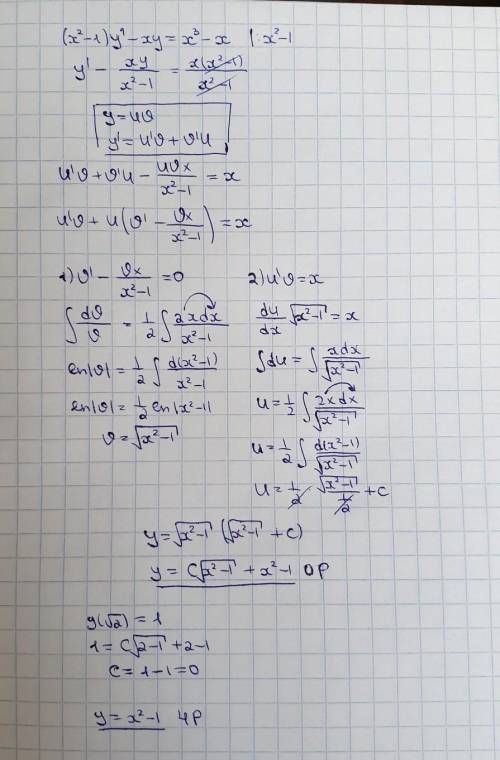 (x²-1)y' - xy = x³ - x |: x²-1
y' - xy/(x²-1) = x(x²-1)/(x²-1)
y = uϑ
y' = u'ϑ + ϑ'u
u'ϑ + ϑ'u - uϑx/(x²-1) = x
u'ϑ + u(ϑ' - ϑx/(x²-1)) = x
1) ϑ' - ϑx/(x²-1) = 0
∫dϑ/ϑ = 1/2 ∫2xdx/(x²-1)
ln|ϑ| = 1/2 ∫d(x²-1)/(x²-1)
ln|ϑ| = 1/2 ln|x²-1|
ϑ = √(x²-1)
2) u'ϑ = x
du/dx √(x²-1) = x
∫du = ∫xdx/√(x²-1)
u = 1/2 ∫2xdx/√(x²-1)
u = 1/2 ∫d(x²-1)/√(x²-1)
u = 1/2 · √(x²-1)/(1/2) + c
y = √(x²-1) (√(x²-1) + c)
y = C√(x²-1) + x²-1 ОР
y(√2) = 1
1 = C√(2-1) + 2-1
C = 1-1 = 0
y = x²-1 ЧР